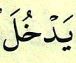 يَدْخُلَ